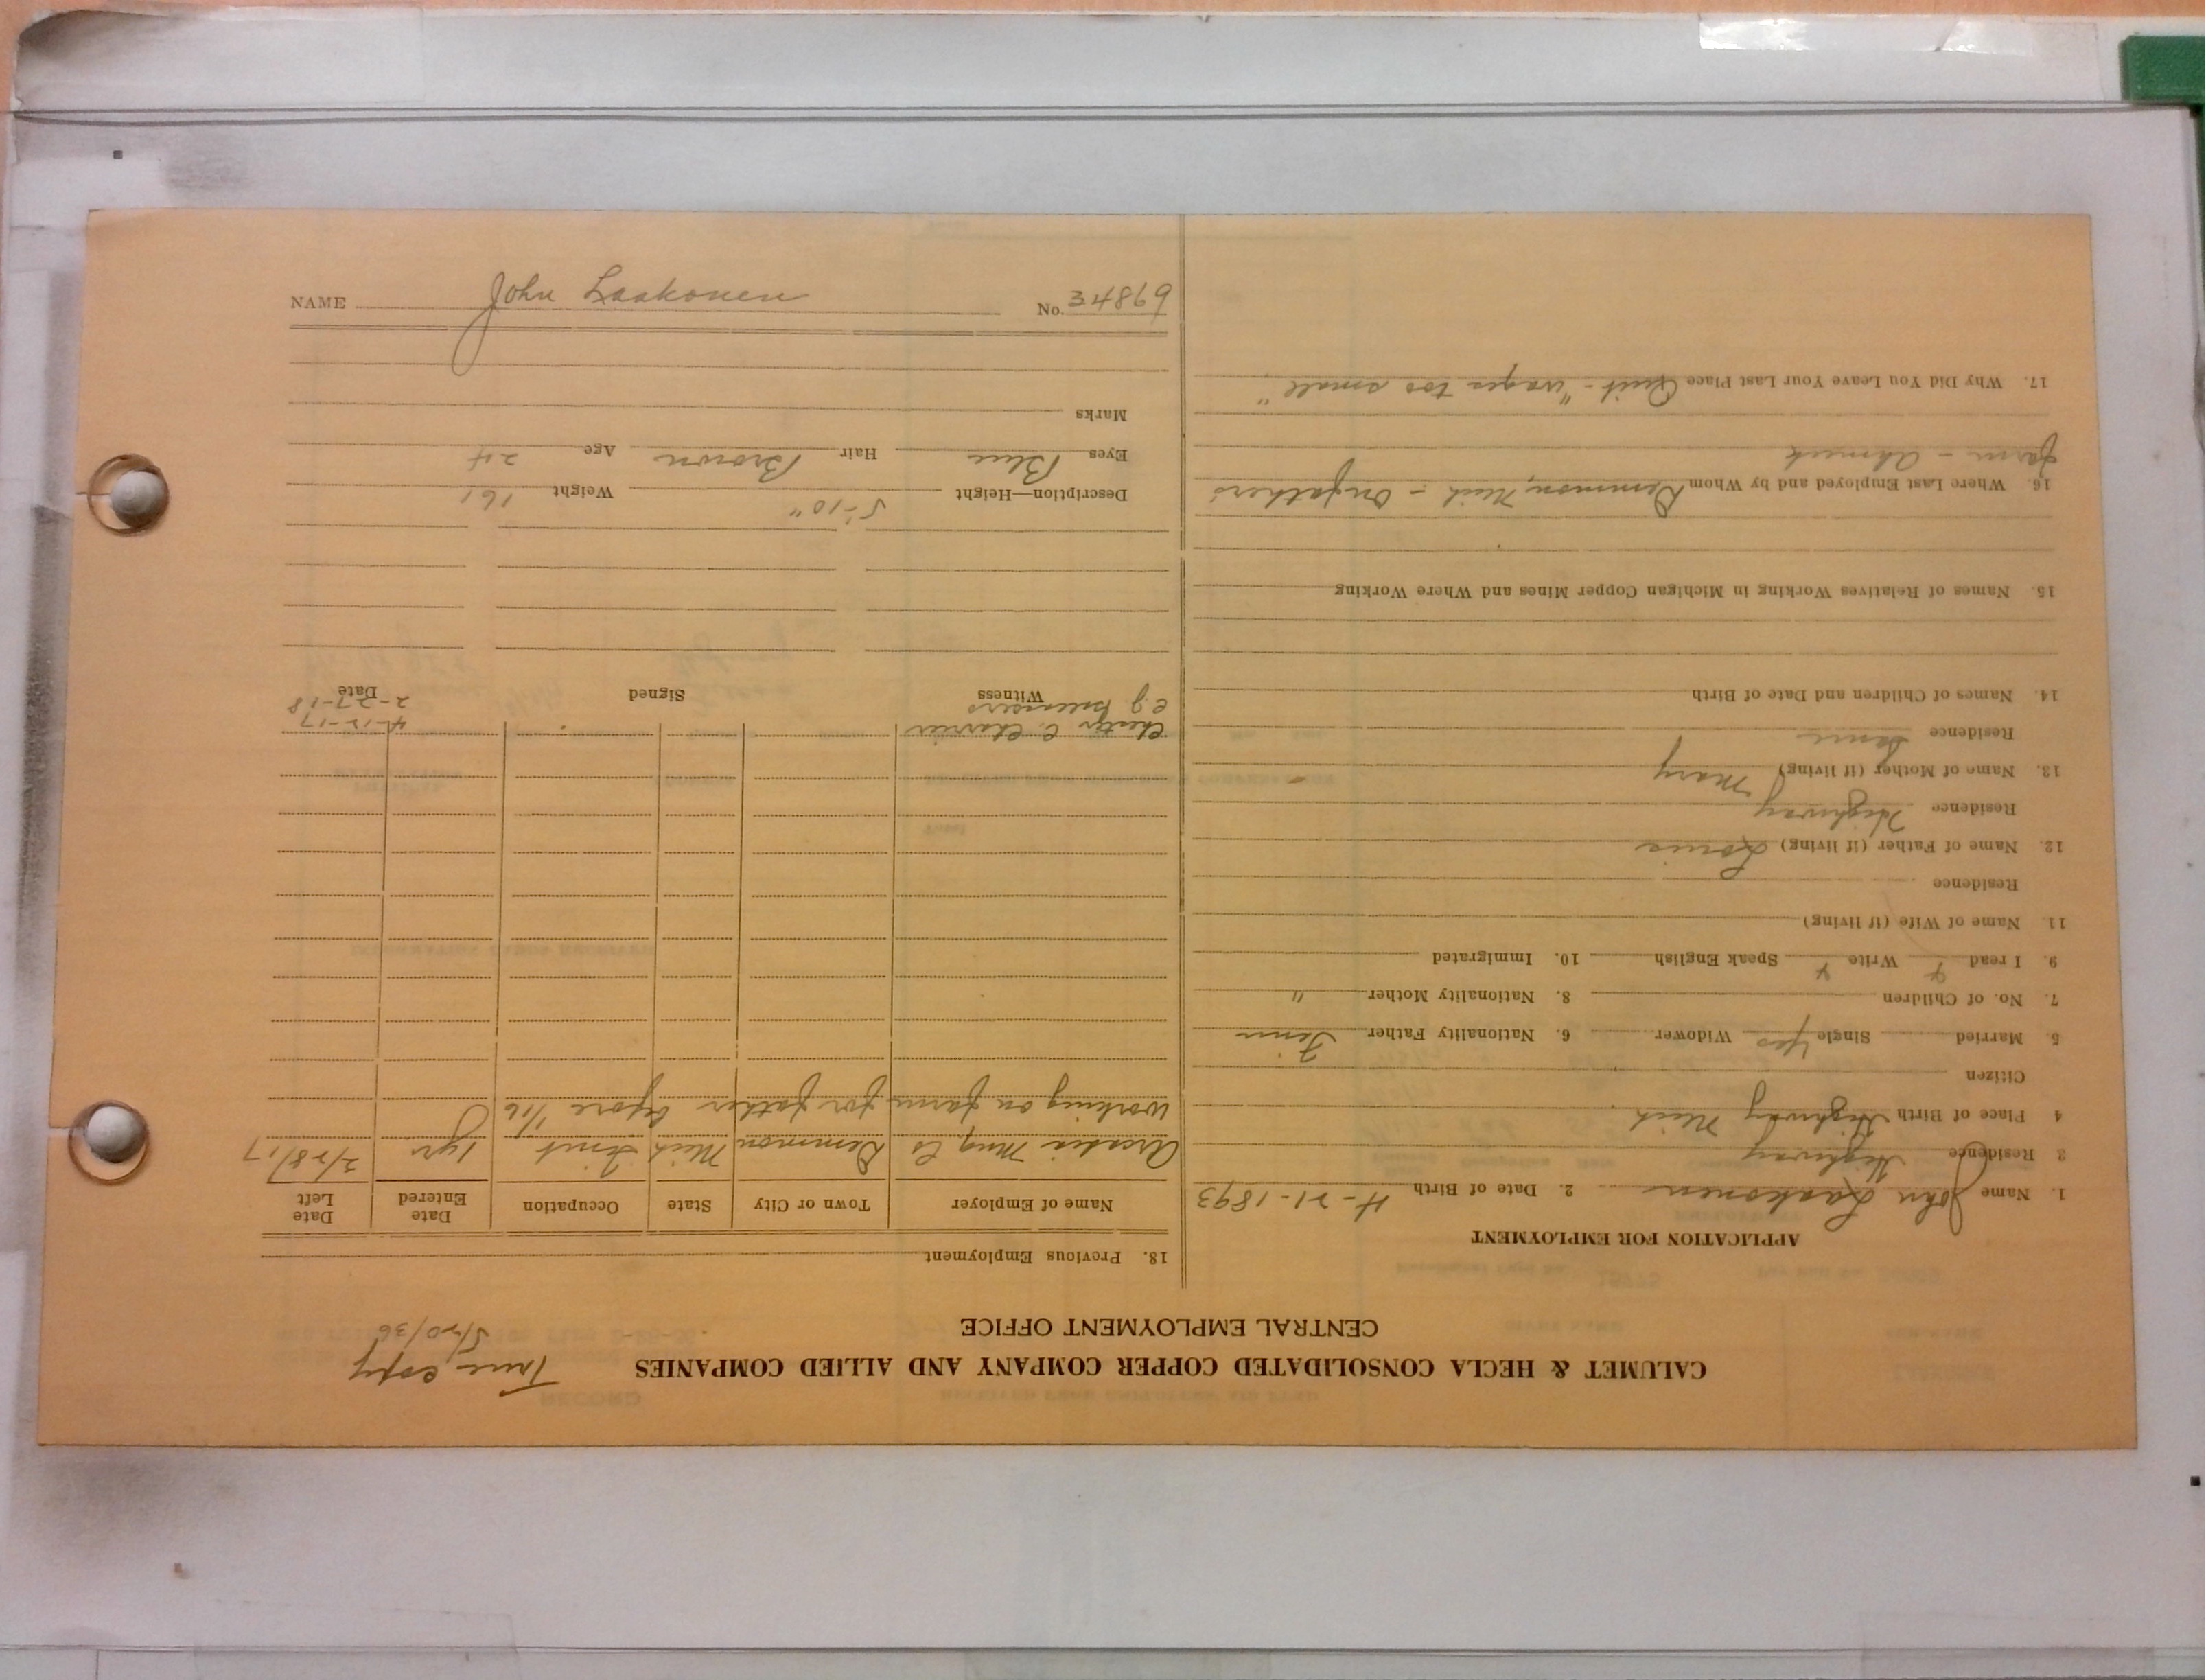 CALUMET & HECLA CONSOLIDATED COPPER COMPANY AND ALLIED COMPANIES
True copy
5/20/36
CENTRAL EMPLOYMENT OFFICE
APPLICATION FOR EMPLOYMENT
1. Name John Laakonen 2. Date of Birth 4-21-1893
2 Residence Highway
4 Place of Birth Highway Mich
Citizen
5. Married Single Yes Widower 6. Nationality Father Finn
7. No. of Children 8. Nationality Mother "
9. I read Write Speak English 10. Immigrated
11. Name of Wife (if living)
Residence
12. Name of Father (if living) Louis
Residence Highway
13. Name of Mother (if living) Mary
Residence Same
14. Names of Children and Date of Birth
15. Names of Relatives Working in Michigan Copper Mines and Where Working
16. Where Last Employed and by Whom Demmon, Mich - On fathers
farm - Ahmeek
17. Why Did You Leave Your Last Place Quit - "wages too small"
18. Previous Employment
Name of Employer Town or City State Occupation Date Entered Date Left
Arcadia Mng Co Demmon Mich 1 yr 2/28/17
Working on farm for father before 1/16
4-12-17
2-27-18
Witness Signed Date
Description—Height 5'-10" Weight 161
Eyes Blue Hair Brown Age 24
Marks
NAME John Laakonen No. 34869